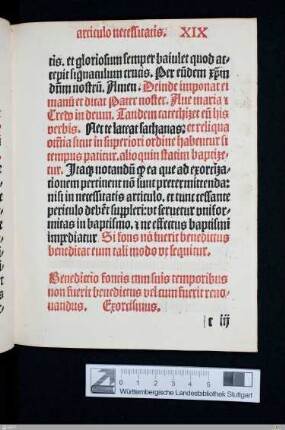 articulo necessitatis. XIX
tis. et gloriosum semper baiulet quod ac-
cepit signaculum crucis. Per eũdem xp̃m
dñm nostrũ. Amen. Deinde imponat ei
manũ et dicat Pater noster. Aue maria ⁊
Credo in deum. Tandem catechizet eũ his
verbis. Nec te lateat sathanas: et reliqua
om̃ia sicut in superiori ordine habentur si
tempus patitur. alioquin statim baptize-
tur. Itaq̃ notandũ ꝙ ea que ad exorciza-
tionem pertinent nõ sunt pretermittenda:
nisi in necessitatis articulo. et tunc cessante
periculo debẽt suppleri: vt seruetur vnifor-
mitas in baptismo. ⁊ ne effectus baptismi
impediatur. Si fons nõ fuerit benedictus
benedicat eum tali modo vt sequitur.
Benedictio fontis cum suis temporibus
non fuerit benedictus vel cum fuerit reno-
uandus. Exorcismus.
c iij
0 1 2 3 4 5
Württembergische Landesbibliothek Stuttgart